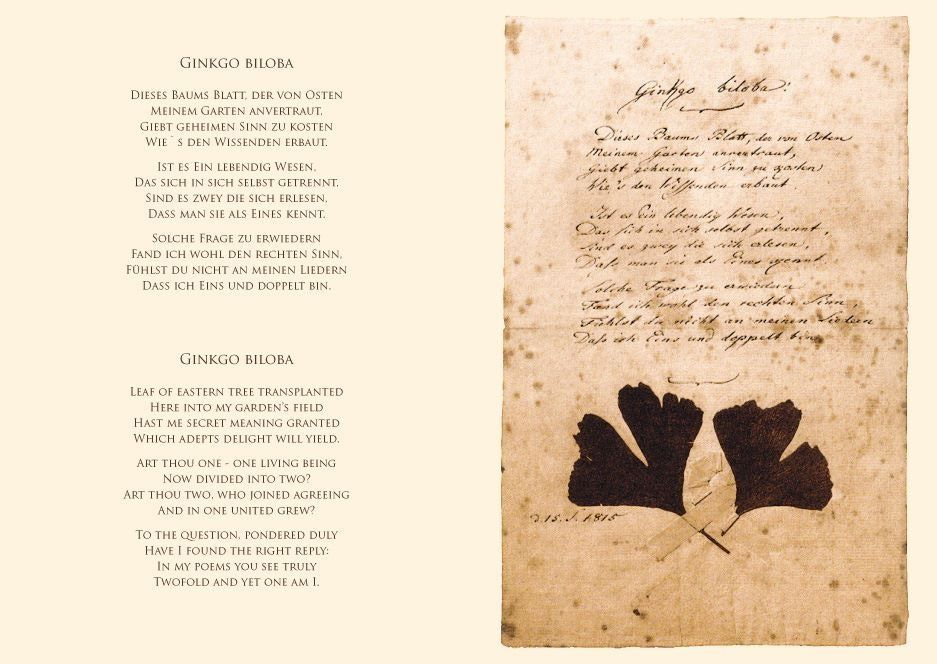 GINKGO BILOBA
DIESES BAUMS BLATT, DER VON OSTEN
MEINEM GARTEN ANVERTRAUT,
GIEBT GEHEIMEN SINN ZU KOSTEN
WIE`S DEN WISSENDEN ERBAUT.
IST ES EIN LEBENDIG WESEN,
DAS SICH IN SICH SELBST GETRENNT,
SIND ES ZWEY DIE SICH ERLESEN,
DASS MAN SIE ALS EINES KENNT.
SOLCHE FRAGE ZU ERWIEDERN
FAND ICH WOHL DEN RECHTEN SINN,
FÜHLST DU NICHT AN MEINEN LIEDERN
DASS ICH EINS UND DOPPELT BIN.
GINKGO BILOBA
LEAF OF EASTERN TREE TRANSPLANTED
HERE INTO MY GARDEN'S FIELD
HAST ME SECRET MEANING GRANTED
WHICH ADEPTS DELIGHT WILL YIELD.
ART THOU ONE - ONE LIVING BEING
NOW DIVIDED INTO TWO?
ART THOU TWO, WHO JOINED AGREEING
AND IN ONE UNITED GREW?
TO THE QUESTION, PONDERED DULY
HAVE I FOUND THE RIGHT REPLY:
IN MY POEMS YOU SEE TRULY
TWOFOLD AND YET ONE AM I.
Ginkgo biloba:
Dieses Baums Blatt, der von Osten
Meinem Garten anvertraut,
Giebt geheimen Sinn zu kosten
Wie's den Wissenden erbaut.
Ist es Ein lebendig Wesen,
Das sich in sich selbst getrennt,
Sind es zwey die sich erlesen,
Daß man sie als Eines kennt.
Solche Frage zu erwiedern
Fand ich wohl den rechten Sinn,
Fühlst du nicht an meinen Liedern
Daß ich Eins und doppelt bin.
d. 15. S. 1815